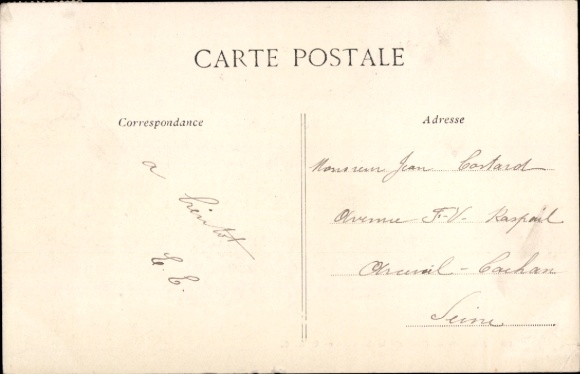 CARTE POSTALE
Correspondance
a
bientot
Adresse
Monsieur Jean Costard
Avenue F-V- Raspail
Arcueil - Cachan
Seine